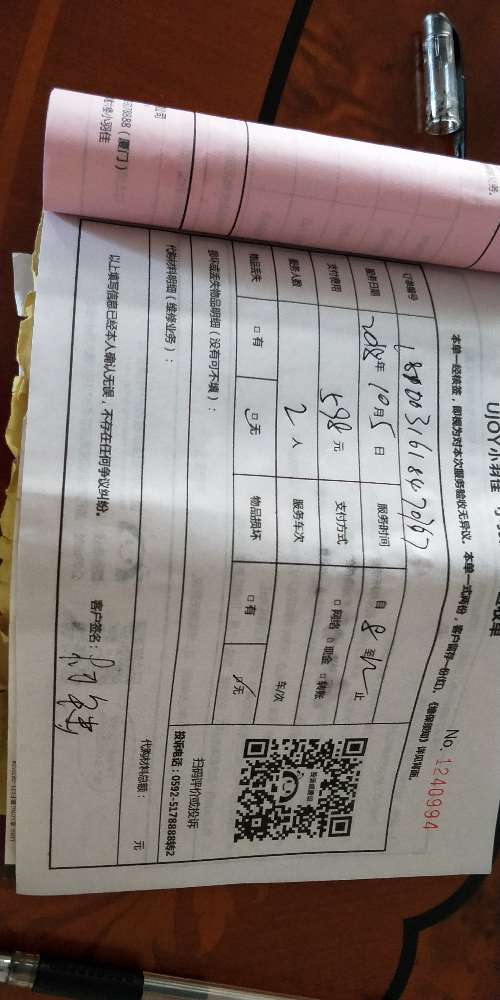 UJOY小羽佳
收单
本单一经核签，即视为对本次服务验收无异议。本单一式两份，客户留存一份(红)，《增保须知》详见背面。
No. 1240994
订单编号
服务日期 2018年10月5日 服务时间 自 8 到 12 止
支付费用 598元 支付方式 □网络 □现金 □转账
服务人数 2人 服务车次 车/次
物品丢失 □有 □无 物品损坏 □有 □无
损坏或丢失物品明细（没有可不填）：
扫码评价或投诉
投诉电话：0592-5178888转2
代购材料明细（维修业务）：
代购材料总额： 元
以上填写信息已经本人确认无误，不存在任何争议纠纷。
客户签名：
78888（厦门）
小羽佳